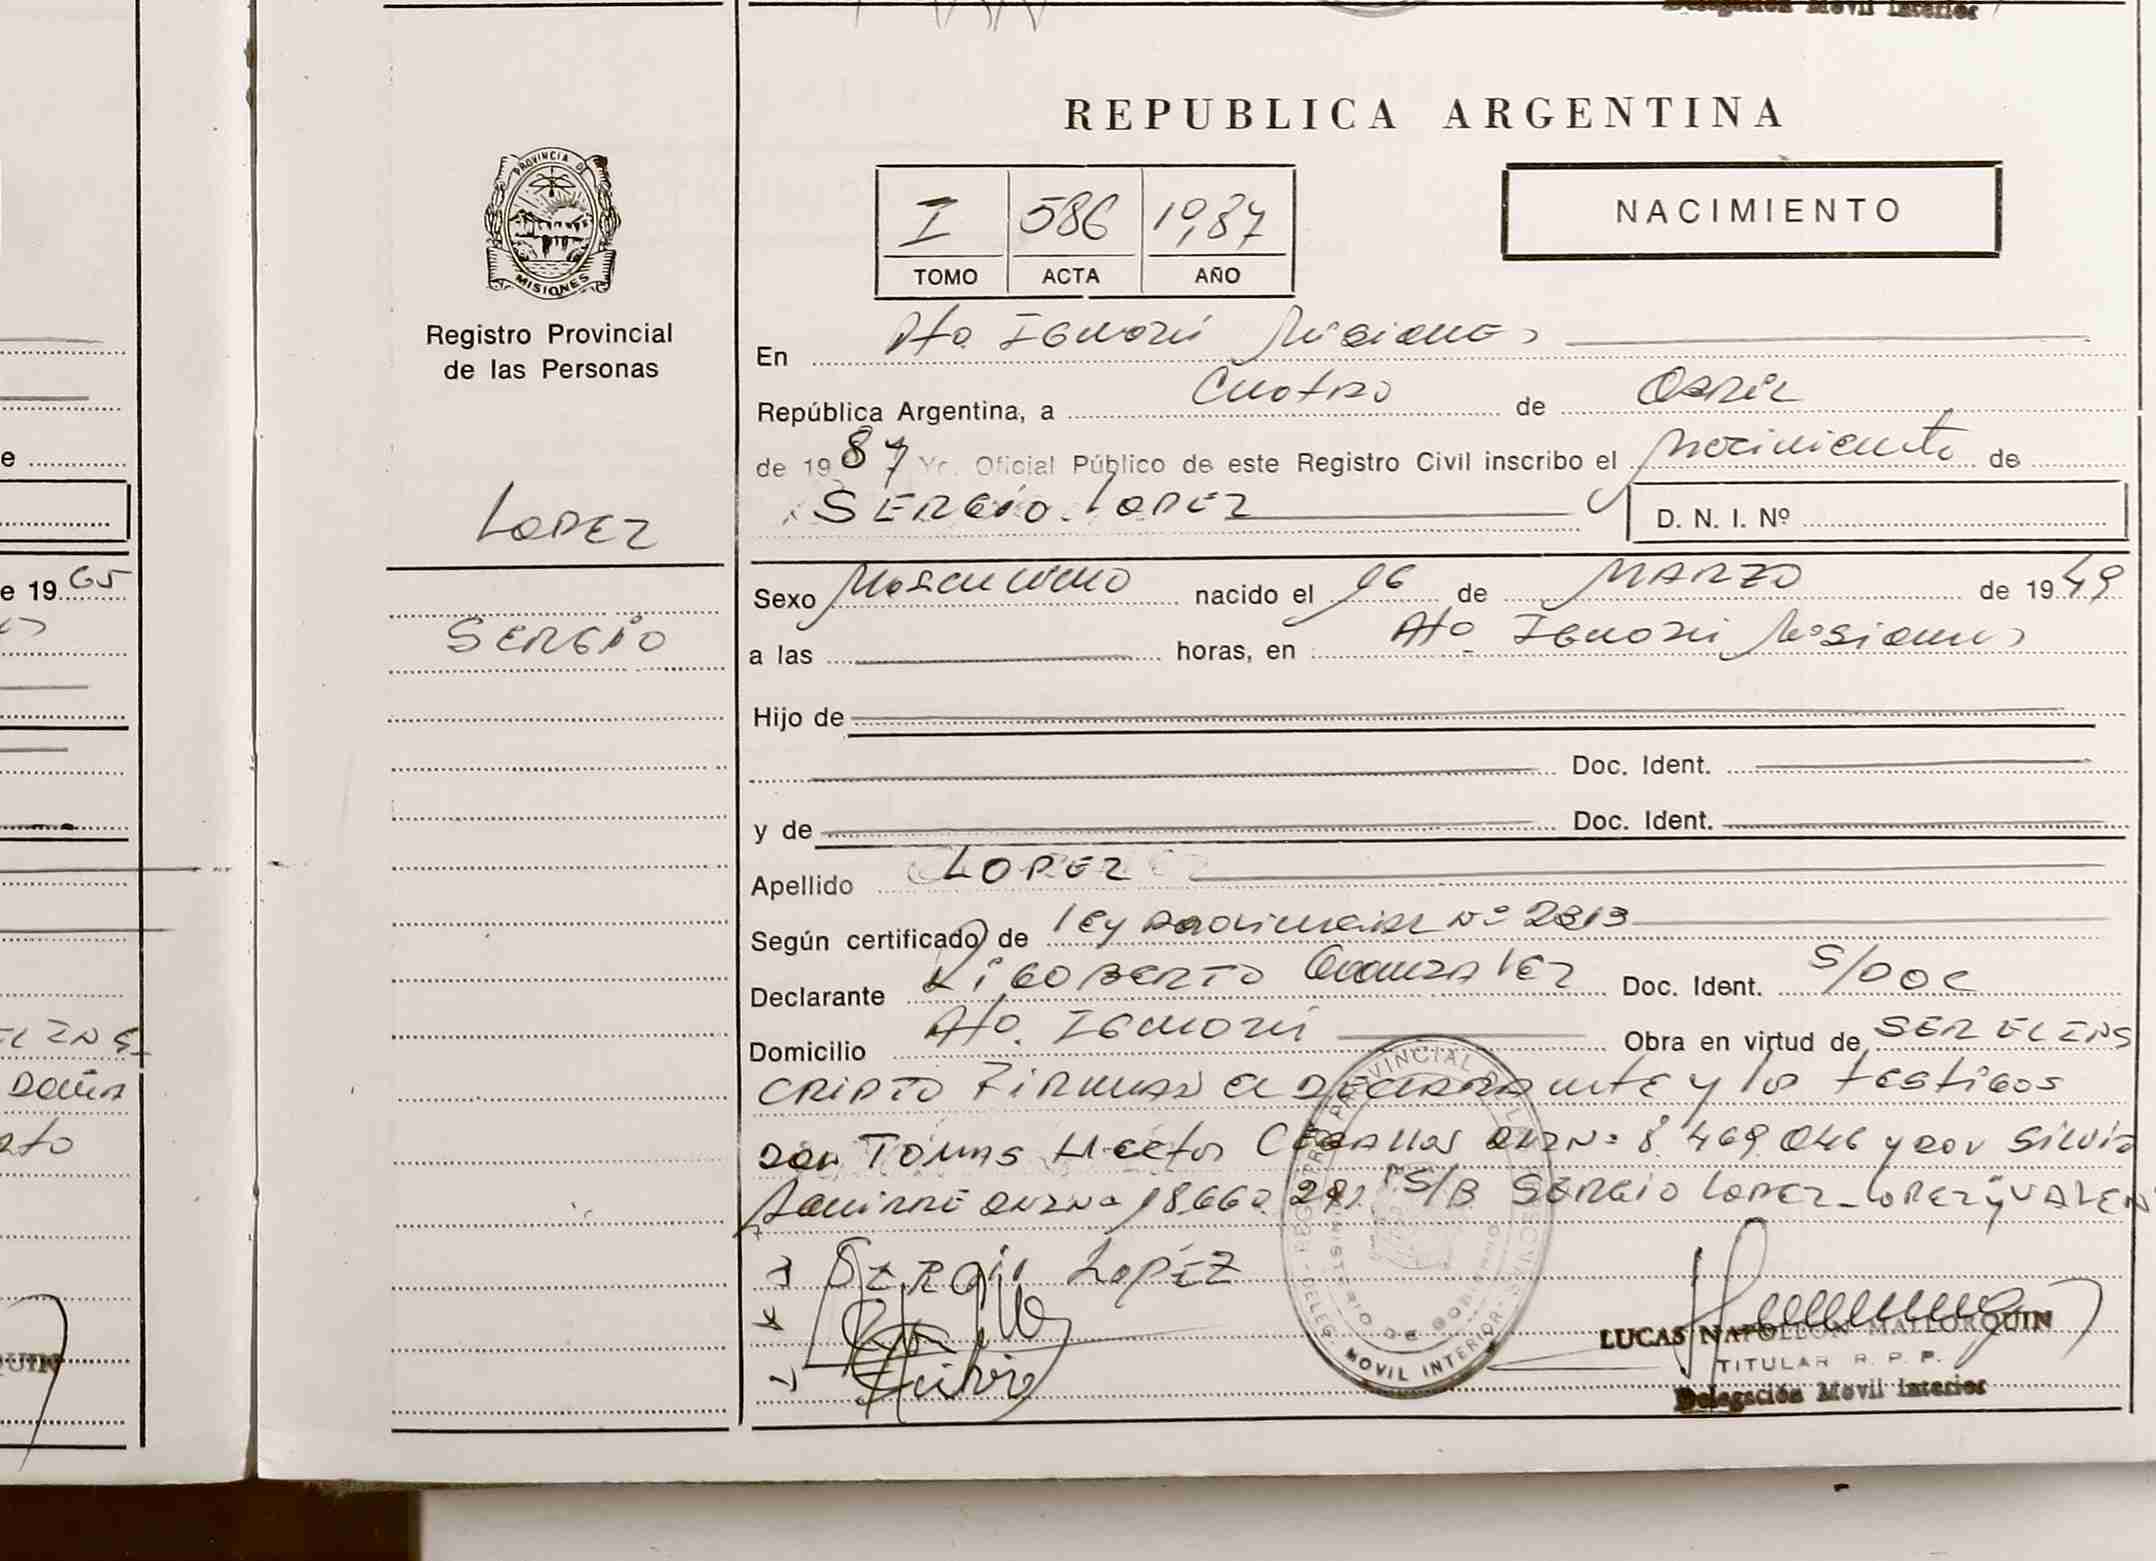 Delegación Movil Interior
REPUBLICA ARGENTINA
PROVINCIA DE
MISIONES
Registro Provincial
de las Personas
LOPEZ
SERGIO
I 586 1987
TOMO ACTA AÑO
NACIMIENTO
En Pto. Iguazú Misiones
República Argentina, a Cuatro de Abril
de 1987 Yo, Oficial Público de este Registro Civil inscribo el Nacimiento de
SERGIO LOPEZ
D. N. I. Nº
Sexo Masculino nacido el 06 de MARZO de 1949
a las horas, en Pto Iguazú Misiones
Hijo de
Doc. Ident.
y de Doc. Ident.
Apellido LOPEZ
Según certificado de ley Provincial Nº 2313
Declarante RIGOBERTO Gonzalez Doc. Ident. S/DOC
Domicilio Pto. Iguazú Obra en virtud de SER EL INS
CRIPTO Firman el DECLARANTE y los testigos
don TOMAS Hector CEBALLOS DNI Nº 8.469.046 y don Silvio
Aguirre DNI Nº 18.660. S/B SERGIO LOPEZ - LOPEZ y VALEN
SERGIO LOPÉZ
LUCAS NAPOLEON MALLORQUIN
TITULAR R. P. P.
Delegación Movil Interior
e
e 1965
EL INS
DOÑA
QUIN